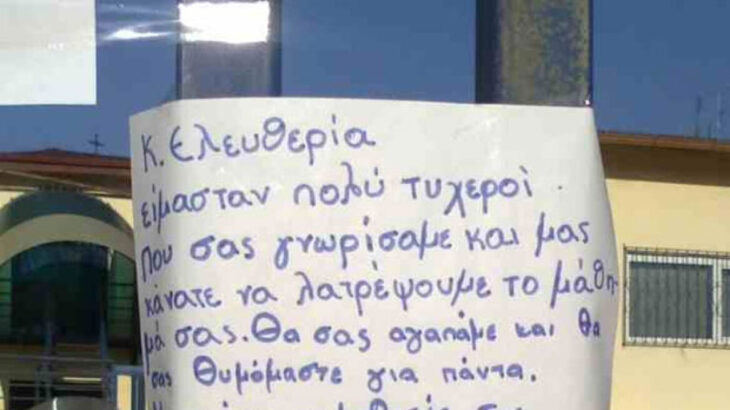 Κ. Ελευθερία
είμασταν πολύ τυχεροί
που σας γνωρίσαμε και μας
κάνατε να λατρέψουμε το μάθη-
μά σας. Θα σας αγαπάμε και θα
σας θυμόμαστε για πάντα.